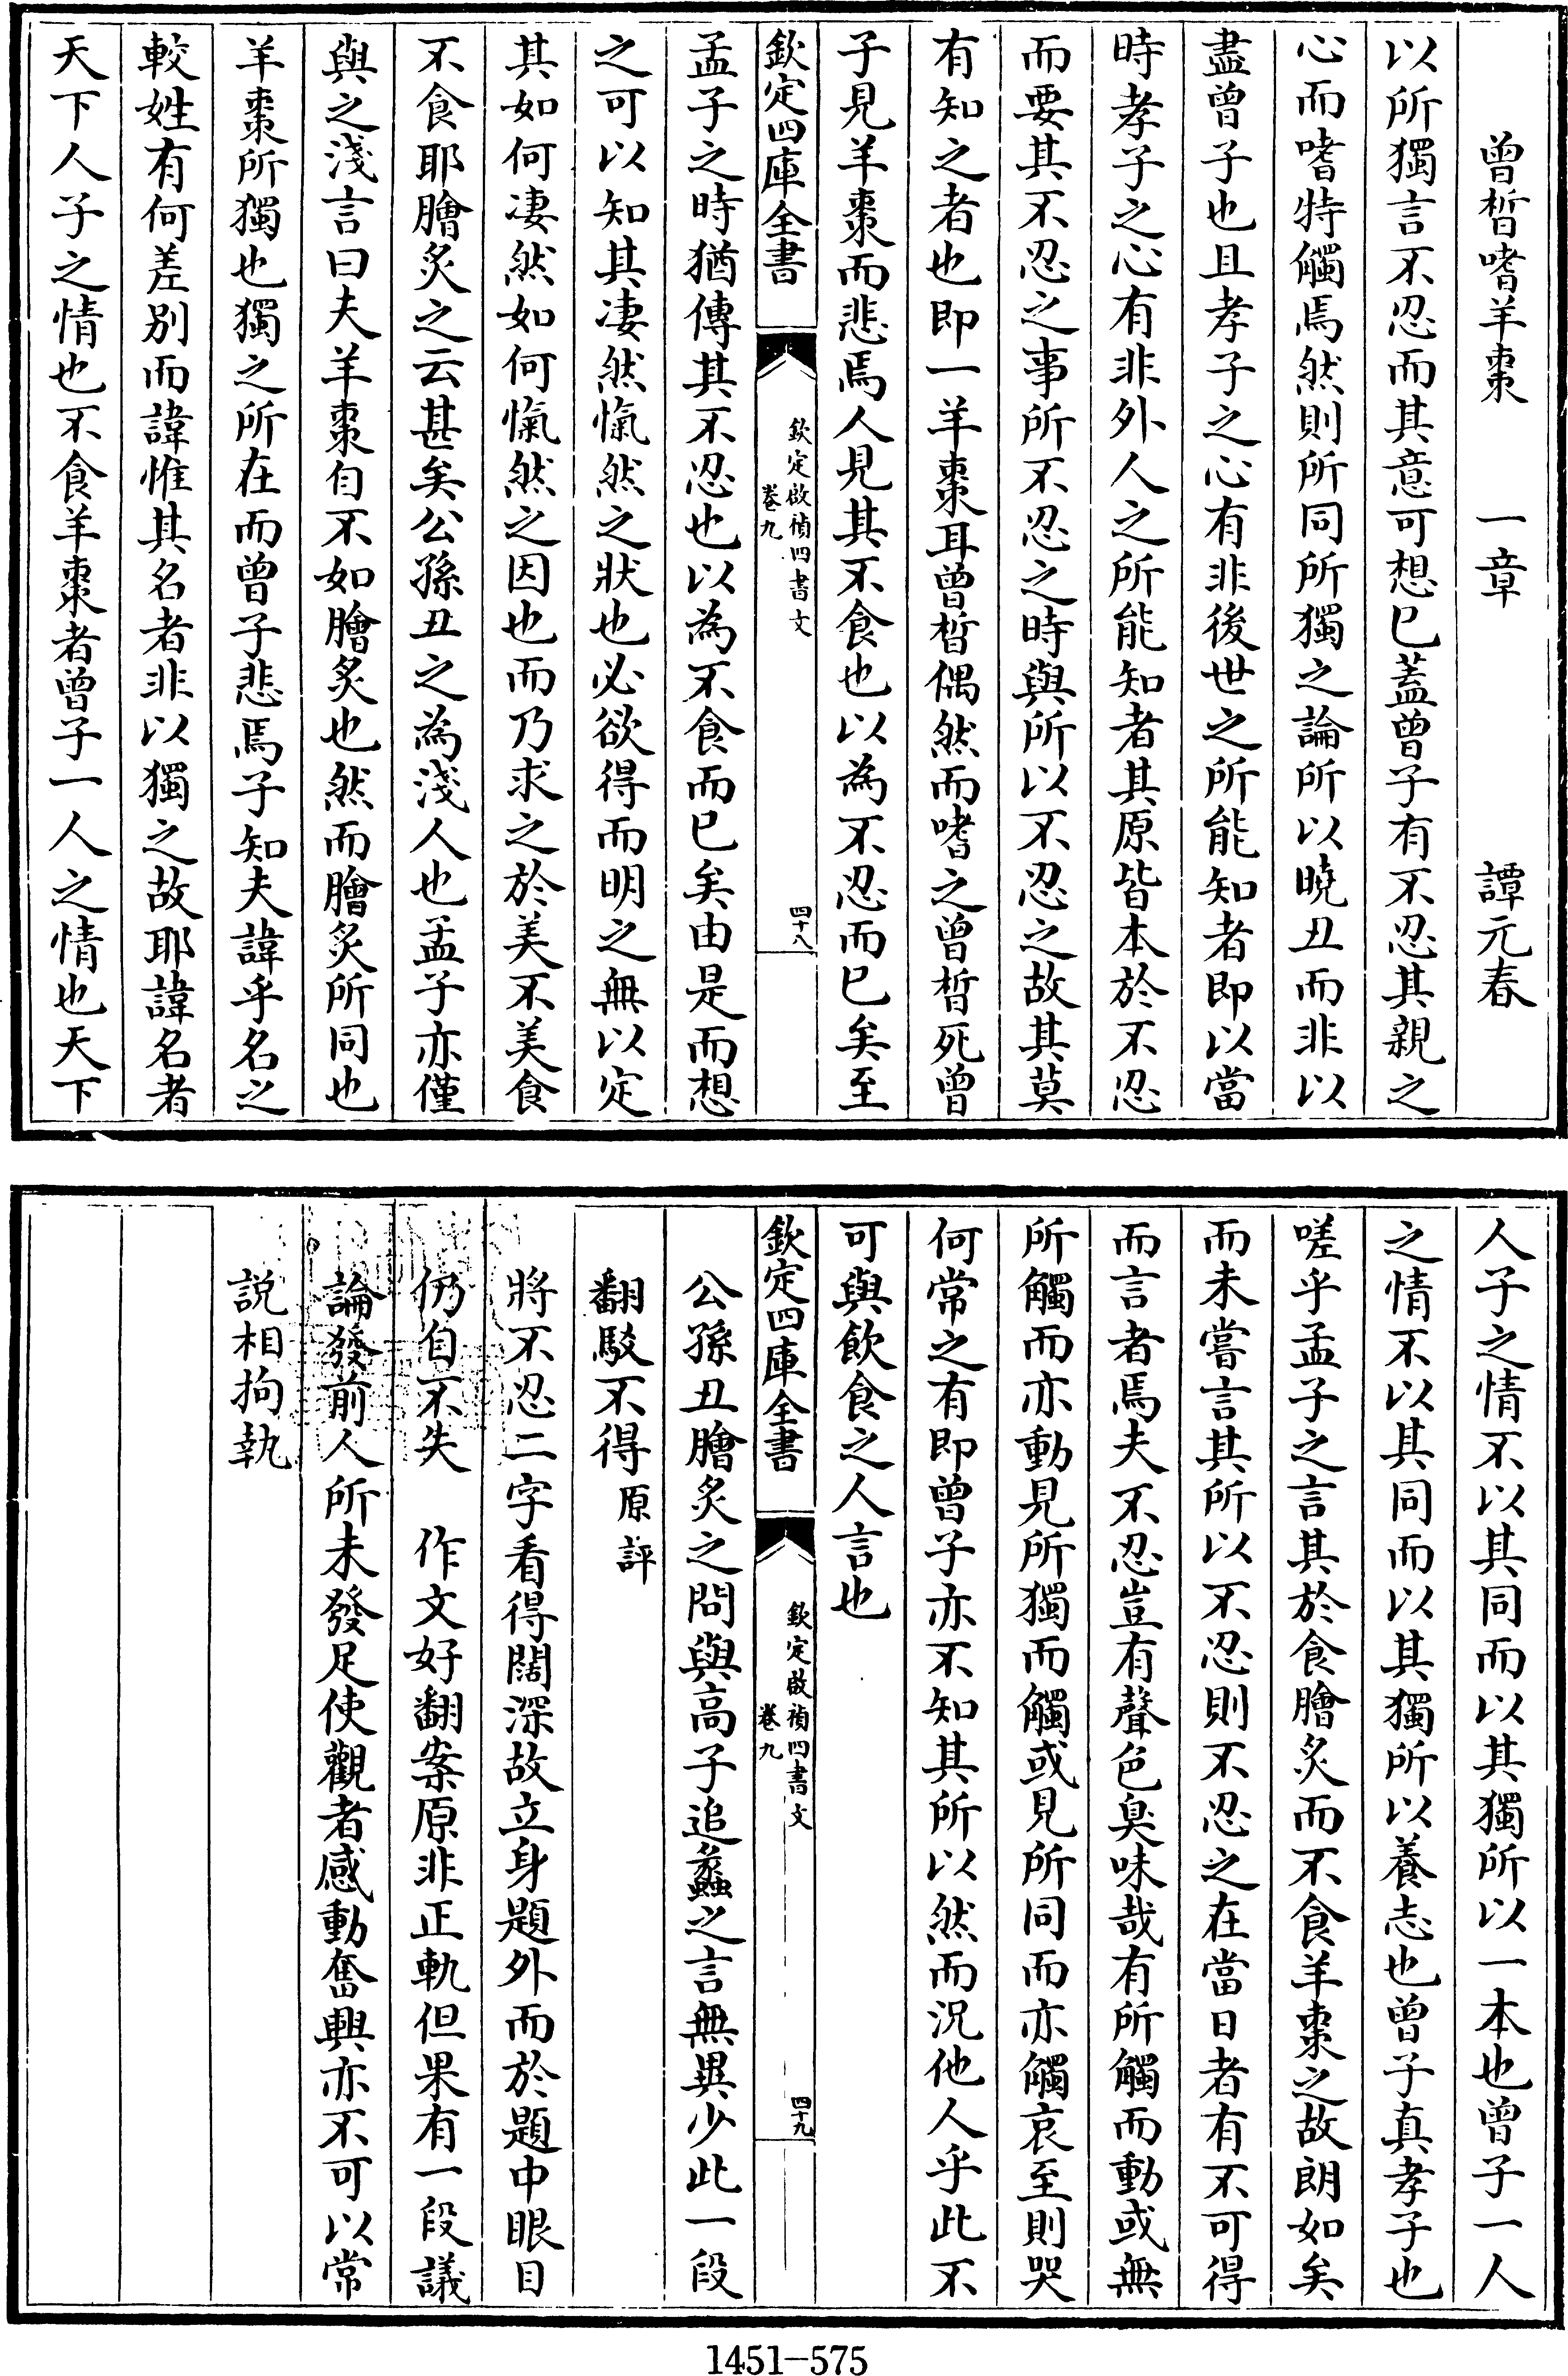 曾皙嗜羊棗　一章　譚元春
以所獨言不忍而其意可想已蓋曾子有不忍其親之
心而嗜特觸焉然則所同所獨之論所以曉丑而非以
盡曾子也且孝子之心有非後世之所能知者即以當
時孝子之心有非外人之所能知者其原皆本於不忍
而要其不忍之事所不忍之時與所以不忍之故其莫
有知之者也即一羊棗耳曾皙偶然而嗜之曾皙死曾
子見羊棗而悲焉人見其不食也以為不忍而已矣至
欽定四庫全書
欽定啟禎四書文
卷九
四十八
孟子之時猶傳其不忍也以為不食而已矣由是而想
之可以知其淒然愾然之狀也必欲得而明之無以定
其如何淒然如何愾然之因也而乃求之於美不美食
不食耶膾炙之云甚矣公孫丑之為淺人也孟子亦僅
與之淺言曰夫羊棗自不如膾炙也然而膾炙所同也
羊棗所獨也獨之所在而曾子悲焉子知夫諱乎名之
較姓有何差別而諱惟其名者非以獨之故耶諱名者
天下人子之情也不食羊棗者曾子一人之情也天下
人子之情不以其同而以其獨所以一本也曾子一人
之情不以其同而以其獨所以養志也曾子真孝子也
嗟乎孟子之言其於食膾炙而不食羊棗之故朗如矣
而未嘗言其所以不忍則不忍之在當日者有不可得
而言者焉夫不忍豈有聲色臭味哉有所觸而動或無
所觸而亦動見所獨而觸或見所同而亦觸哀至則哭
何常之有即曾子亦不知其所以然而況他人乎此不
可與飲食之人言也
欽定四庫全書
欽定啟禎四書文
卷九
四十九
公孫丑膾炙之問與高子追蠡之言無異少此一段
翻駁不得原評
將不忍二字看得闊深故立身題外而於題中眼目
仍自不失　作文好翻案原非正軌但果有一段議
論發前人所未發足使觀者感動奮興亦不可以常
說相拘執
1451-575